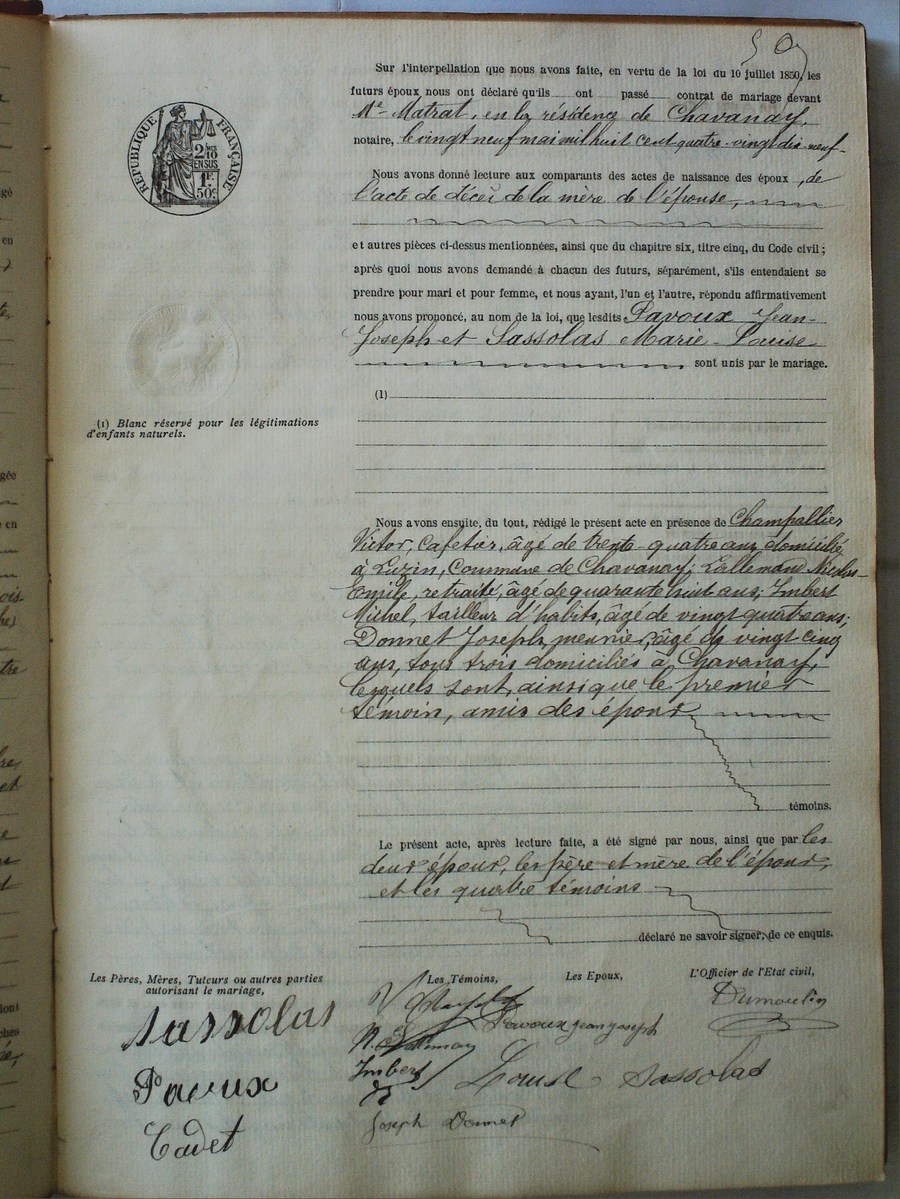 Sur l'interpellation que nous avons faite, en vertu de la loi du 10 juillet 1850, les
futurs époux nous ont déclaré qu'ils ont passé contrat de mariage devant
Me Matrat, en la résidence de Chavanay,
notaire, le vingt neuf mai mil huit cent quatre-vingt dix-neuf
RÉPUBLIQUE FRANÇAISE
2/10
EN SUS
1F.
50c
Nous avons donné lecture aux comparants des actes de naissance des époux, de
l'acte de décès de la mère de l'épouse,
et autres pièces ci-dessus mentionnées, ainsi que du chapitre six, titre cinq, du Code civil ;
après quoi nous avons demandé à chacun des futurs, séparément, s'ils entendaient se
prendre pour mari et pour femme, et nous ayant, l'un et l'autre, répondu affirmativement
nous avons prononcé, au nom de la loi, que lesdits Pavoux Jean-
Joseph et Sassolas Marie-Louise
sont unis par le mariage.
(1)
(1) Blanc réservé pour les légitimations
d'enfants naturels.
Nous avons ensuite, du tout, rédigé le présent acte en présence de Champallier
Victor, cafetier, âgé de trente-quatre ans domicilié
à Luzin, Commune de Chavanay; Lallemand Nicolas
Emile, retraité, âgé de quarante huit ans; Imbert
Michel, tailleur d'habits, âgé de vingt quatre ans;
Donnet Joseph, meunier, âgé de vingt cinq
ans, tous trois domiciliés à Chavanay,
lesquels sont, ainsi que le premier
témoin, amis des époux
témoins.
Le présent acte, après lecture faite, a été signé par nous, ainsi que par les
deux époux, les père et mère de l'époux,
et les quatre témoins
déclaré ne savoir signer, de ce enquis.
Les Pères, Mères, Tuteurs ou autres parties
autorisant le mariage,
Les Témoins,
Les Epoux,
L'Officier de l'Etat civil,
Sassolas
Pavoux
Cadet
Imbert
Joseph Donnet
Pavoux jean joseph
Louise Sassolas
Dumoulin